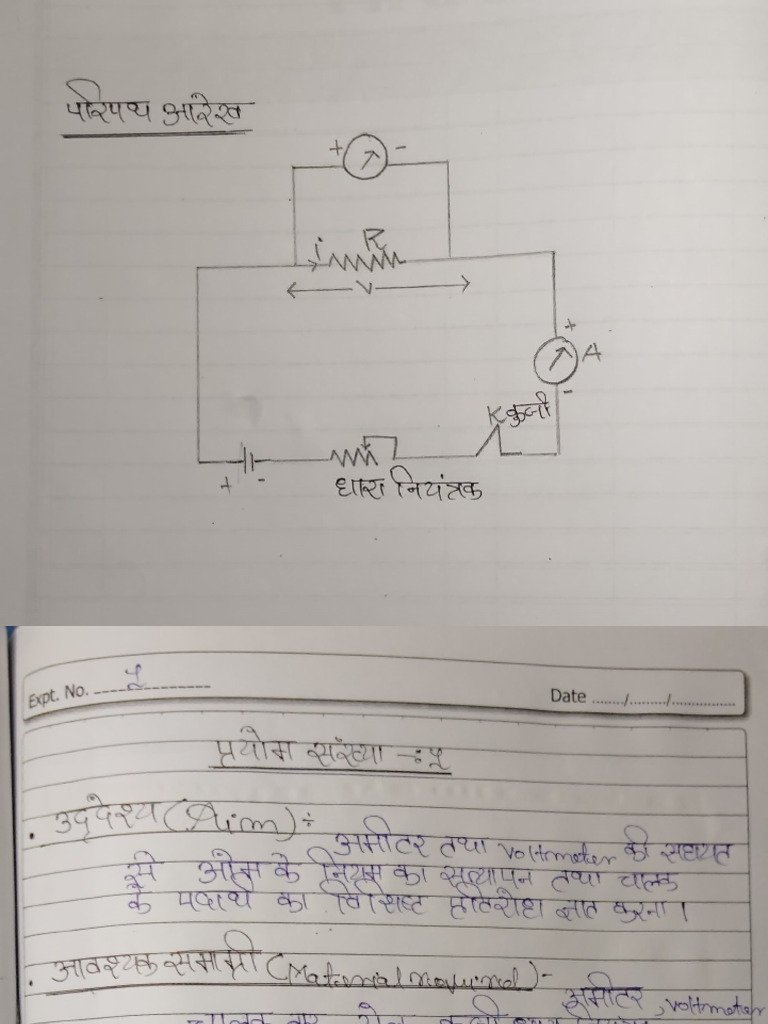 परिपथ आरेख
+ -
i R
V
+
A
-
K कुंजी
+ -
धारा नियंत्रक
Expt. No. ५
Date ......../......../...............
प्रयोग संख्या -: ५
. उद्देश्य (Aim) ÷
अमीटर तथा voltmeter की सहायत
से ओम के नियम का सत्यापन तथा चालक
के पदार्थ का विशिष्ट प्रतिरोध ज्ञात करना ।
. आवश्यक समाग्री (Material required) -
अमीटर, voltmeter